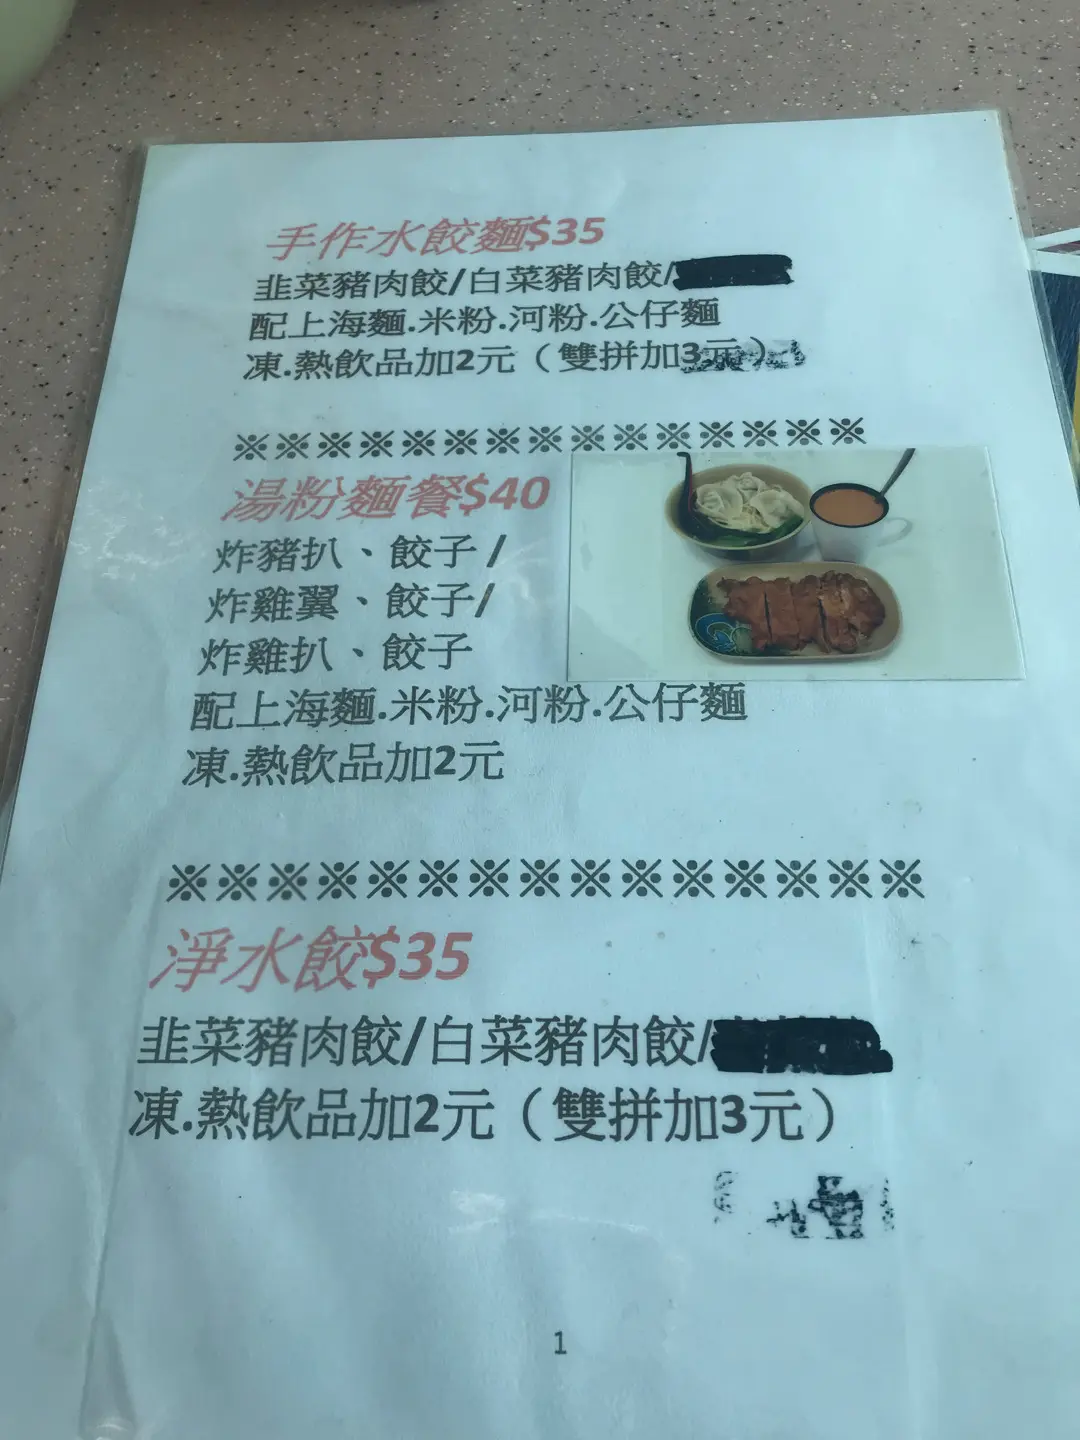 手作水餃麵$35
韭菜豬肉餃/白菜豬肉餃/
配上海麵.米粉.河粉.公仔麵
凍.熱飲品加2元（雙拼加3元）
※※※※※※※※※※※※※※※
湯粉麵餐$40
炸豬扒、餃子/
炸雞翼、餃子/
炸雞扒、餃子
配上海麵.米粉.河粉.公仔麵
凍.熱飲品加2元
※※※※※※※※※※※※※※※
淨水餃$35
韭菜豬肉餃/白菜豬肉餃/
凍.熱飲品加2元（雙拼加3元）
1